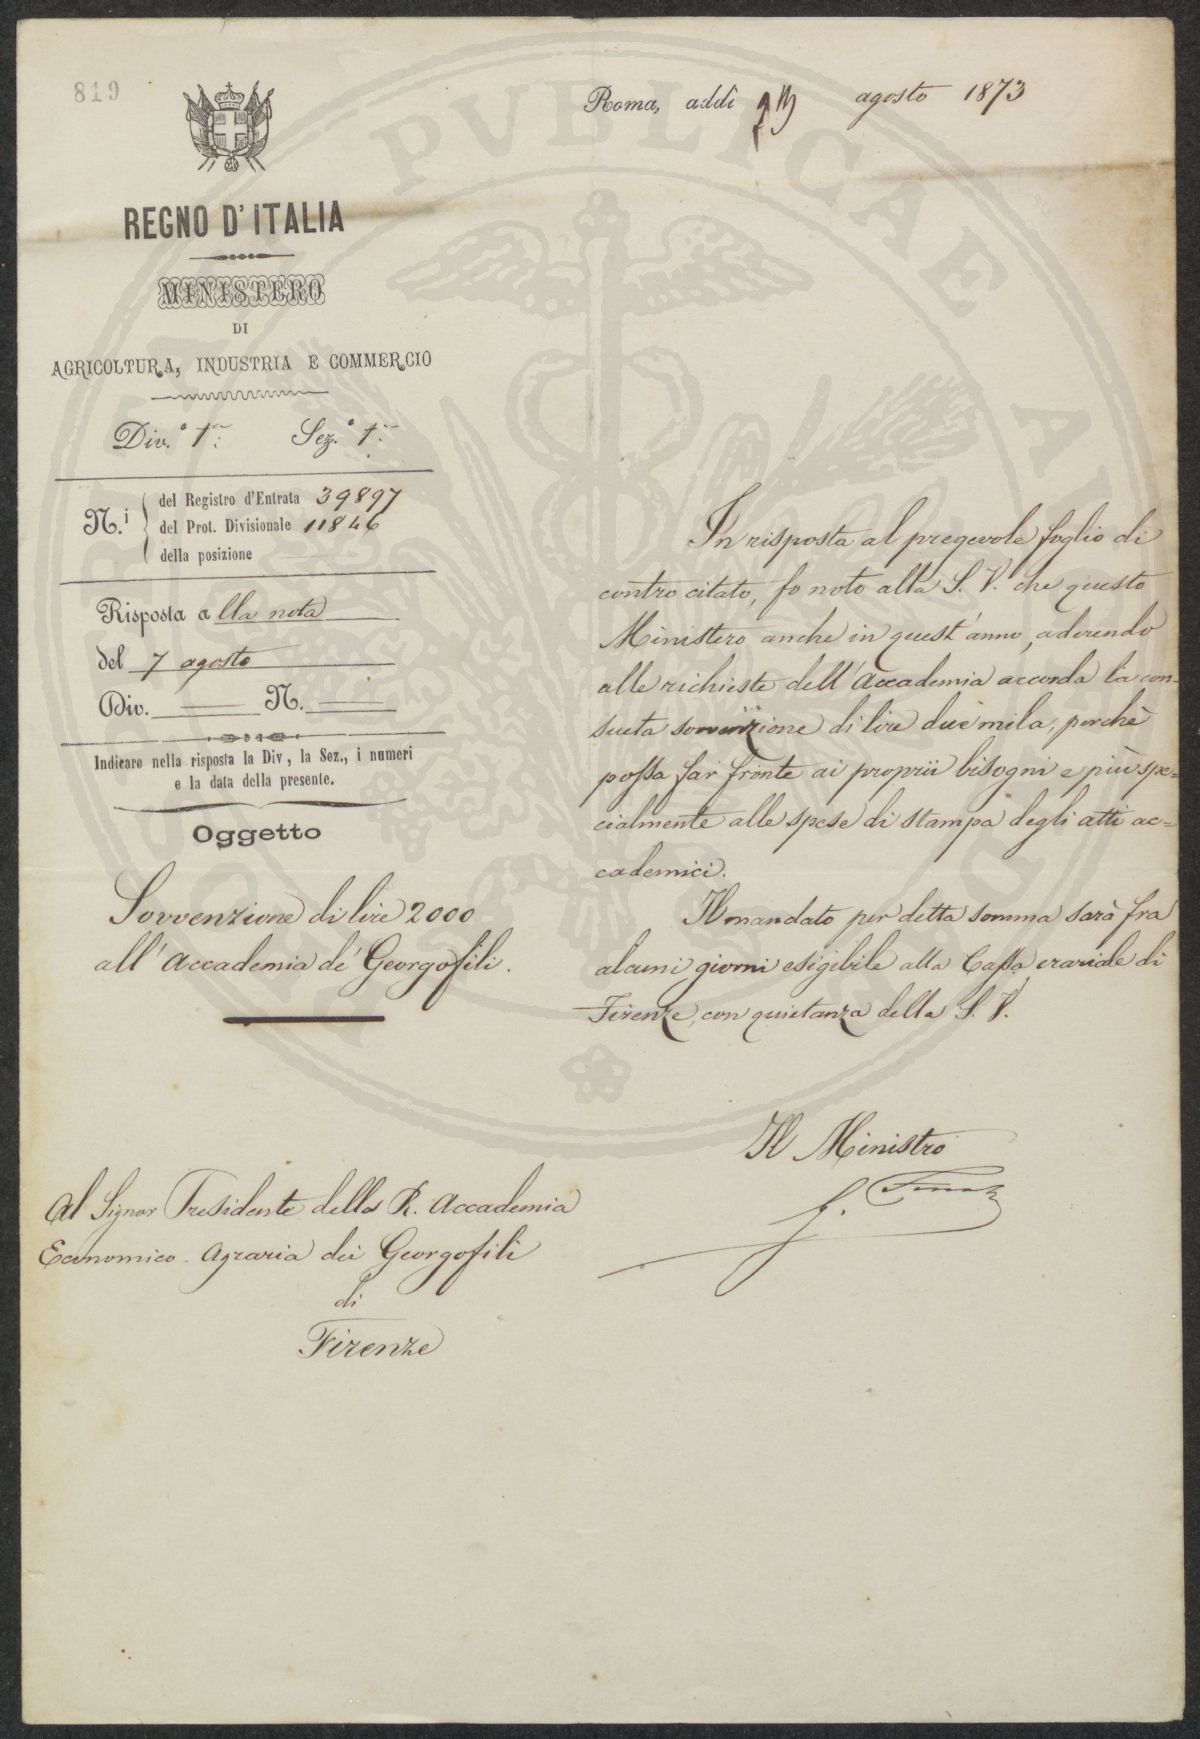 819
Roma, addì agosto 1873
REGNO D'ITALIA
MINISTERO
DI
AGRICOLTURA, INDUSTRIA E COMMERCIO
Div.e 1a: Sez.e 1a:
N.i
del Registro d'Entrata 39897
del Prot. Divisionale 11846
della posizione
Risposta alla nota
del 7 agosto
Div. N.
Indicare nella risposta la Div, la Sez., i numeri
e la data della presente.
Oggetto
Sovvenzione di lire 2000
all'Accademia de' Georgofili.
Al Signor Presidente della R. Accademia
Economico-Agraria dei Georgofili
di
Firenze
In risposta al pregevole foglio di
contro citato, fo noto alla S. V. che questo
Ministero anche in quest'anno, aderendo
alle richieste dell'Accademia accorda la con-
sueta sovvenzione di lire due mila, perchè
possa far fronte ai proprii bisogni e più spe-
cialmente alle spese di stampa degli atti ac-
cademici.
Il mandato per detta somma sarà fra
alcuni giorni esigibile alla Cassa erariale di
Firenze, con quietanza della S. V.
Il Ministro